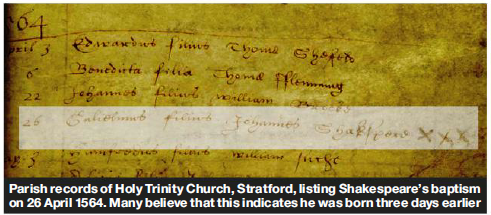 64
April 3 Edwardus filius Thome Shefeld
6 Benedicta filia Thome Fflemming
22 Johannes filius William
26 Gulielmus filius Johannes Shakspere XXX
filius William
Parish records of Holy Trinity Church, Stratford, listing Shakespeare's baptism
on 26 April 1564. Many believe that this indicates he was born three days earlier